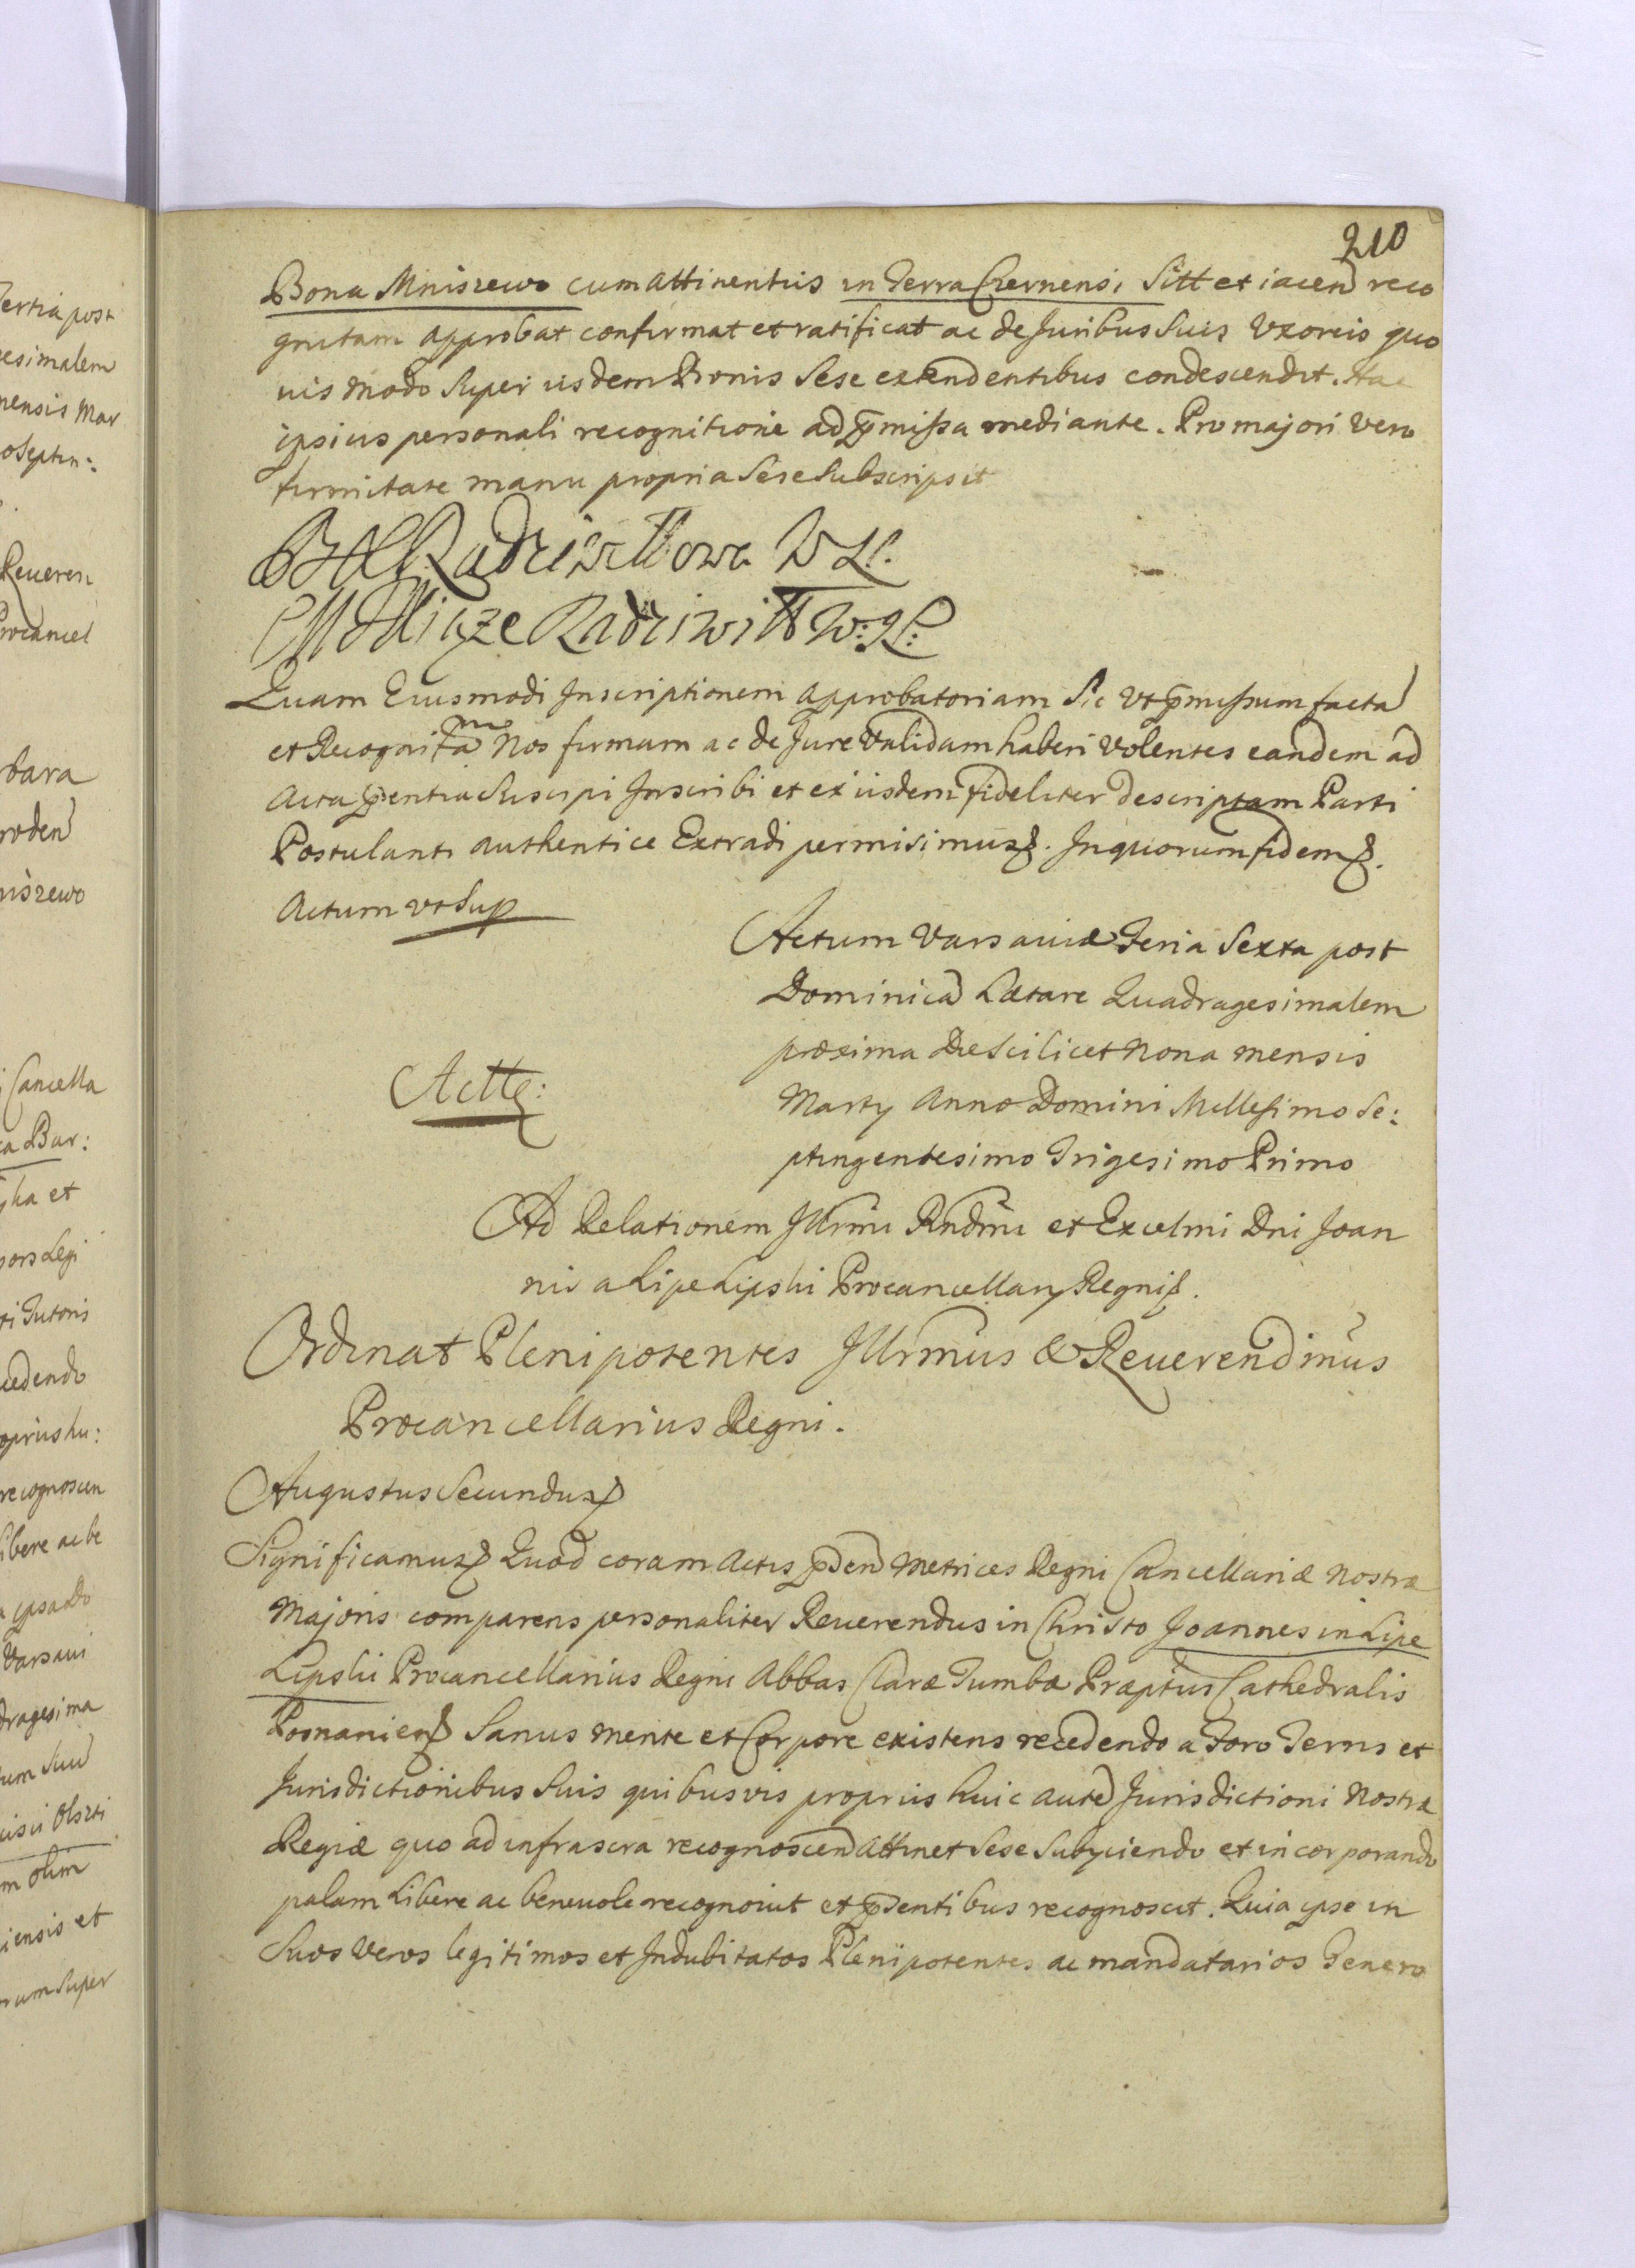 210
Bona Mniszewo cum attinentiis in Terra Czernensi Sitt et iacen reco
gnitam approbat confirmat et ratificat ac de Juribus Suis Uxoreis quo
uis modo Super iisdem Bonis Sese extendentibus condescendit. Hac
ipsius personali recognitione ad p̃missa mediante. Pro majori vero
firmitate manu propria Sese Subscripsit
Radziwiłłowa W
Radziwiłł W:
Quam Eiusmodi Inscriptionem approbatoriam Sic ut p̃missum facta
et Recognitam Nos firmam ac de Jure Validam haberi Volentes eandem ad
Acta p̃entia Suscipi Inscribi et ex iisdem fideliter descriptam Parti
Postulanti authentice Extradi permisimus. In quorum fidem.
Actum ut Sup
Actum Varsaviæ Feria Sexta post
Dominica Lætare Quadragesimalem
proxima Die Scilicet Nona mensis
Marty Anno Domini Millesimo Se:
ptingentesimo Trigesimo Primo
Ad Relationem Illrmi Rndmi et Excelmi Dni Joan
nis a Lipe Lipski Procancellary Regni.
Ordinat Plenipotentes Illrmus & Reuerendmus
Procancellarius Regni.
Augustus Secundus
Significamus Quod coram Actis p̃sen Metrices Regni Cancellariæ Nostræ
Majoris comparens personaliter Reuerendus in Christo Joannes in Lipe
Lipski Procancellarius Regni Abbas Claræ Tumbæ Præptus Cathedralis
Posnanien Sanus mente et Corpore existens recedendo a Foro Terris et
Jurisdictionibus Suis quibusvis propriis huic aute Jurisdictioni Nostræ
Regiæ quo ad infrascra recognoscen attinet Sese Subyciendo et incorporando
palam Libere ac beneuole recognouit et p̃sentibus recognoscit. Quia ipse in
Suos Veros legitimos et Indubitatos Plenipotentes ac mandatarios Genero